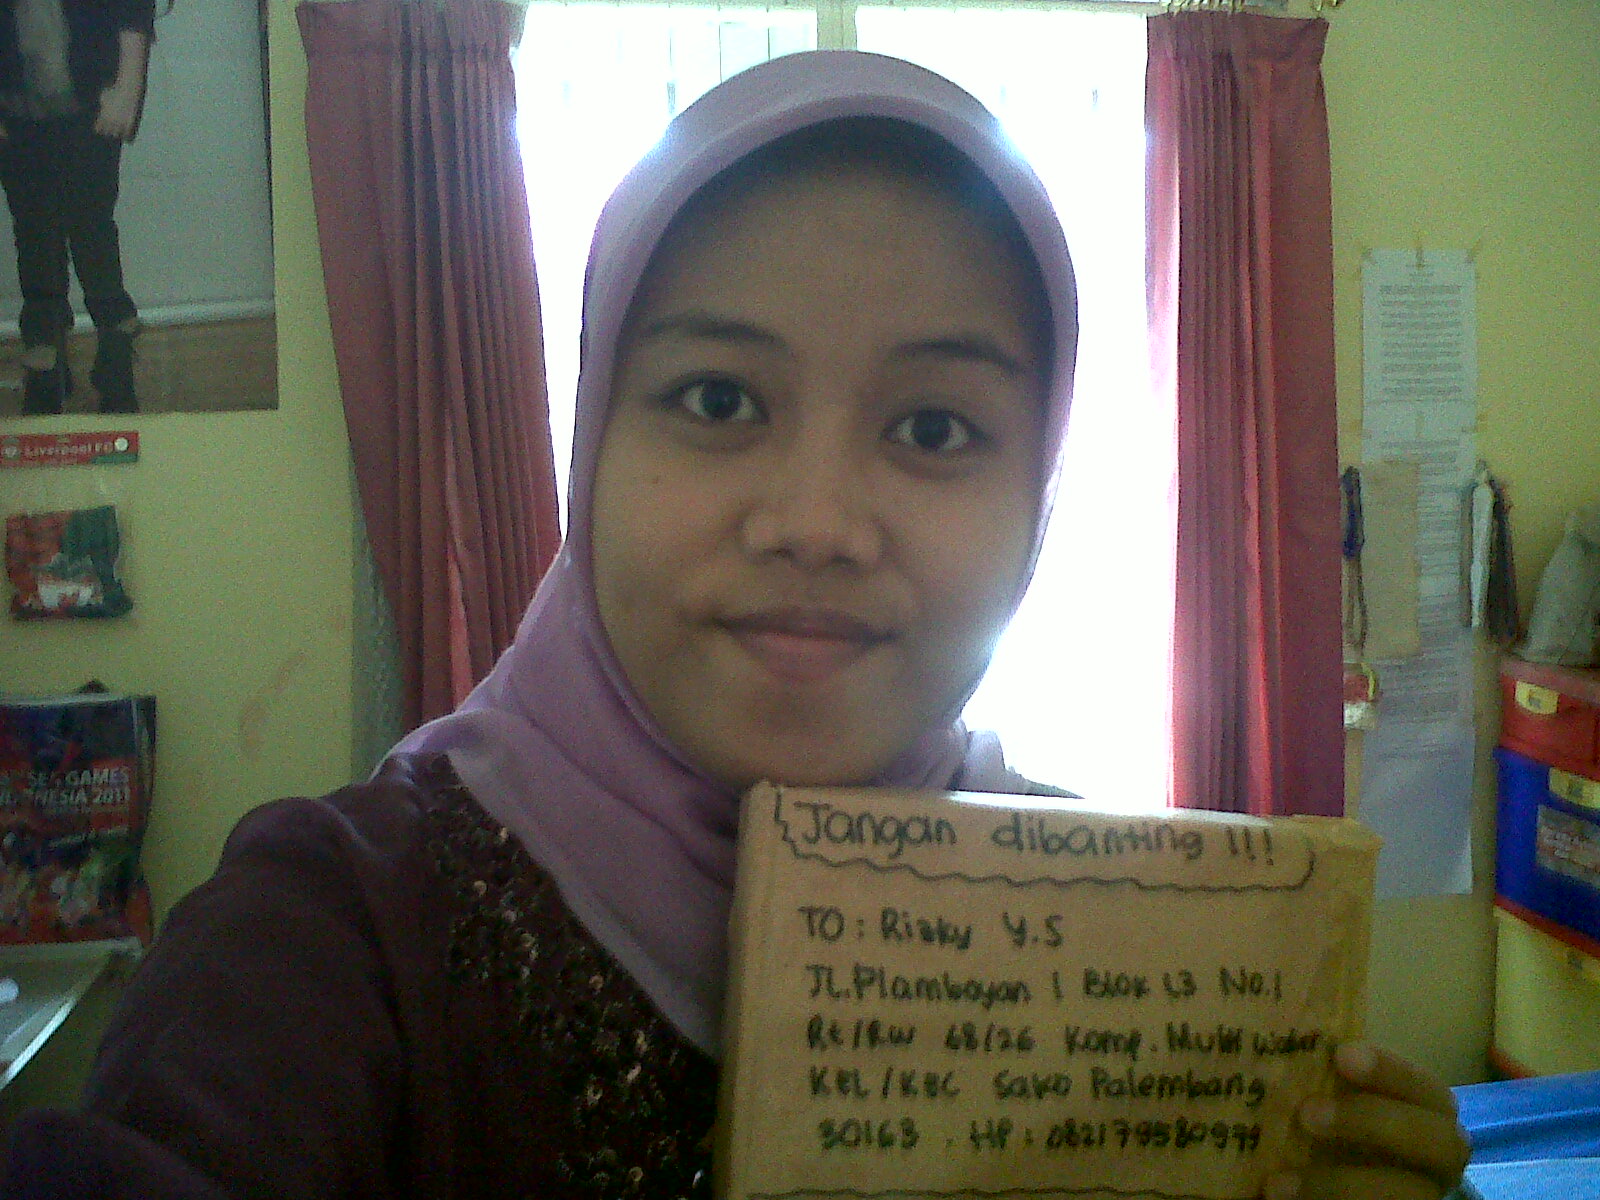 Liverpool FC
SEA GAMES
INDONESIA 2011
Jangan dibanting !!!
TO : Rizky Y.S
JL.Plamboyan 1 Blok L3 No.1
Rt/Rw 68/26 Komp. Multi
KEL/KEC Sako Palembang
30163 . HP : 082179580979